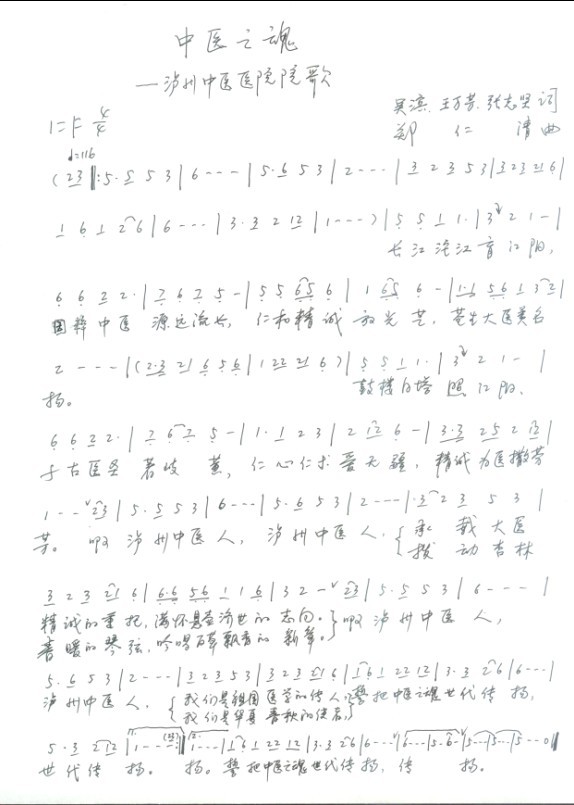 中医之魂
—泸州中医医院院歌
吴滨、王万芳、张志坚词
1=F 4/4
郑 仁 清曲
♩=116
(23‖:5·5 5 3|6 - - -|5·6 5 3|2 - - -|3 2 3 5 3|3 2 3 21 6|
1 6 1 2 6|6 - - -|3·3 2 12|1 - - -)|5 5 1 1·|3 2 1 -|
长江沱江育江阳,
6 6 2 2·|2 6 2 5 -|5 5 65 6|1 65 6 -|1·1 56 1 32|
国粹中医 源远流长, 仁和精诚 放光芒, 苍生大医美名
2 - - -|(2·3 21 6 56|1 22 21 6)|5 5 1 1·|3 2 1 -|
扬。 鼓楼白塔 照江阳,
6 6 2 2·|2 6 2 5 -|1·1 2 3|2 12 6 -|3·3 25 2 12|
千古医圣 著岐黄, 仁心仁术 爱无疆, 精诚为医撒芬
1 - - 23|5·5 5 3|6 - - -|5·6 5 3|2 - - -|3 2 3 5 3|
芳。 啊 泸州中医人, 泸州中医人, 承载大医
拨动杏林
3 2 3 21 6|6·6 56 1 1 6|3 2 - 23|5·5 5 3|6 - - -|
精诚的重托,满怀悬壶济世的志向。啊 泸州中医人,
春暖的琴弦,吟唱百草飘香的新
5·6 5 3|2 - - -|3 2 3 5 3|3 2 3 21 6|1 6 1 22 12|3·3 26|6 - - -|
泸州中医人, 我们是祖国医学的传人,誓把中医之魂世代传扬,
我们是华夏 的使者,
5·3 2 12|1 - - -:‖1 - - -|1 6 1 22 12|3·3 26|6 - - -|6 - - -|5·6 -|5 - - -|5 - - -|5 - - 0‖
世代传 扬。 扬。誓把中医之魂世代传扬, 传 扬。